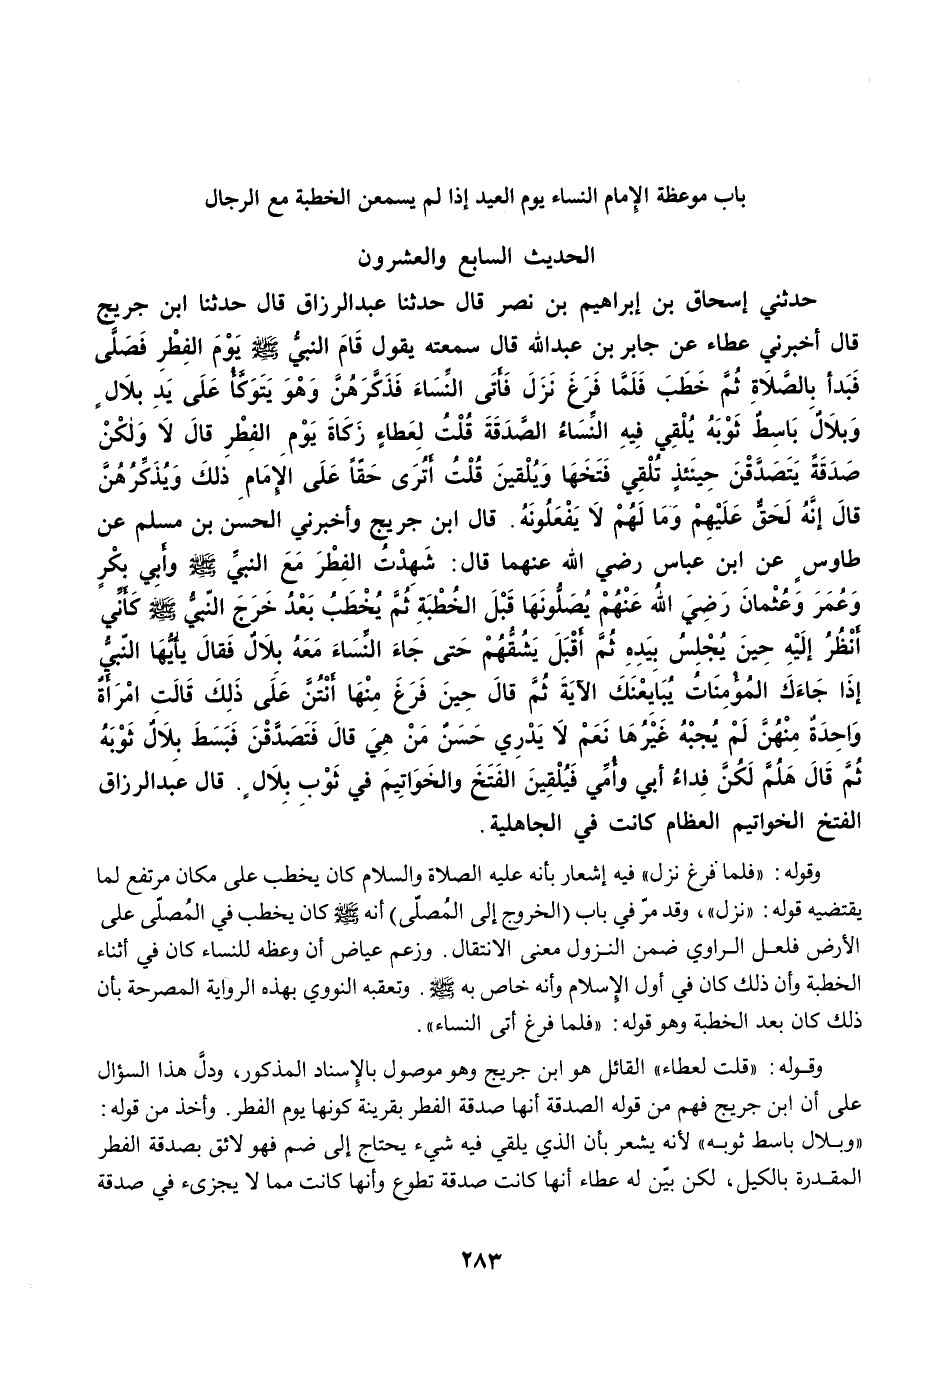 باب موعظة الإمام النساء يوم العيد إذا لم يسمعن الخطبة مع الرجال
الحديث السابع والعشرون
حدثني إسحاق بن إبراهيم بن نصر قال حدثنا عبدالرزاق قال حدثنا ابن جريج
قال أخبرني عطاء عن جابر بن عبدالله قال سمعته يقول قَامَ النبيُّ ﷺ يَوْمَ الفِطْرِ فَصَلَّى
فَبَدأ بِالصَّلَاةِ ثُمَّ خَطَبَ فَلَمَّا فَرَغَ نَزَلَ فَأتَى النِّسَاءَ فَذَكَّرَهُنَّ وَهْوَ يَتَوَكَّأُ عَلَى يَدِ بِلَالٍ
وَبِلَالٌ بَاسِطٌ ثَوْبَهُ يُلْقِي فِيهِ النِّسَاءُ الصَّدَقَةَ قُلْتُ لِعَطاءٍ زَكَاةَ يَوْمِ الفِطْرِ قالَ لَا وَلٰكنْ
صَدَقَةً يَتَصَدَّقْنَ حِينَئذٍ تُلْقِي فَتَخَهَا وَيُلْقينَ قُلْتُ أتُرَى حَقّاً عَلَى الإمَامِ ذلكَ وَيُذَكِّرُهُنَّ
قالَ إنَّهُ لَحَقٌّ عَلَيْهِمْ وَمَا لَهُمْ لَا يَفْعَلُونَهُ. قال ابن جريج وأخبرني الحسن بن مسلم عن
طاوسٍ عن ابن عباس رضي الله عنهما قال: شَهِدْتُ الفِطْرَ مَعَ النبيِّ ﷺ وأَبي بكْرٍ
وَعُمَرَ وَعُثْمانَ رَضِيَ اللهُ عَنْهُمْ يُصَلُّونَهَا قَبْلَ الخُطْبَةِ ثُمَّ يُخْطَبُ بَعْدُ خَرَجَ النّبيُّ ﷺ كَأَنِّي
أَنْظُرُ إلَيْهِ حِينَ يُجْلِسُ بِيَدِهِ ثُمَّ أقْبَلَ يَشُقُّهُمْ حتى جَاءَ النِّسَاءَ مَعَهُ بِلَالٌ فَقالَ يأيُّهَا النّبيُّ
إذَا جَاءَكَ المُؤْمِنَاتُ يُبَايعْنَكَ الآيَةَ ثُمَّ قالَ حِينَ فَرَغَ مِنْهَا أنْتُنَّ عَلَى ذَلِكَ قَالَتِ امْرَأَةٌ
وَاحِدَةٌ مِنْهُنَّ لَمْ يُجبْهُ غَيْرُهَا نَعَمْ لَا يَدْرِي حَسَنٌ مَنْ هِيَ قالَ فَتَصَدَّقْنَ فَبَسَطَ بِلَالٌ ثَوْبَهُ
ثُمَّ قَالَ هَلُمَّ لَكُنَّ فِداءُ أبي وأُمِّي فَيُلْقِينَ الفَتَخَ والخَوَاتِيمَ في ثَوْبِ بِلَالٍ. قال عبدالرزاق
الفتخ الخواتيم العظام كانت في الجاهلية.
وقوله: «فلما فرغ نزل» فيه إشعار بأنه عليه الصلاة والسلام كان يخطب على مكان مرتفع لما
يقتضيه قوله: «نزل»، وقد مرّ في باب (الخروج إلى المُصلّى) أنه ﷺ كان يخطب في المُصلّى على
الأرض فلعل الراوي ضمن النزول معنى الانتقال. وزعم عياض أن وعظه للنساء كان في أثناء
الخطبة وأن ذلك كان في أول الإسلام وأنه خاص به ﷺ. وتعقبه النووي بهذه الرواية المصرحة بأن
ذلك كان بعد الخطبة وهو قوله: «فلما فرغ أتى النساء».
وقوله: «قلت لعطاء» القائل هو ابن جريج وهو موصول بالإسناد المذكور، ودلَّ هذا السؤال
على أن ابن جريج فهم من قوله الصدقة أنها صدقة الفطر بقرينة كونها يوم الفطر. وأخذ من قوله:
«وبلال باسط ثوبه» لأنه يشعر بأن الذي يلقي فيه شيء يحتاج إلى ضم فهو لائق بصدقة الفطر
المقدرة بالكيل، لكن بيّن له عطاء أنها كانت صدقة تطوع وأنها كانت مما لا يجزىء في صدقة
٢٨٣